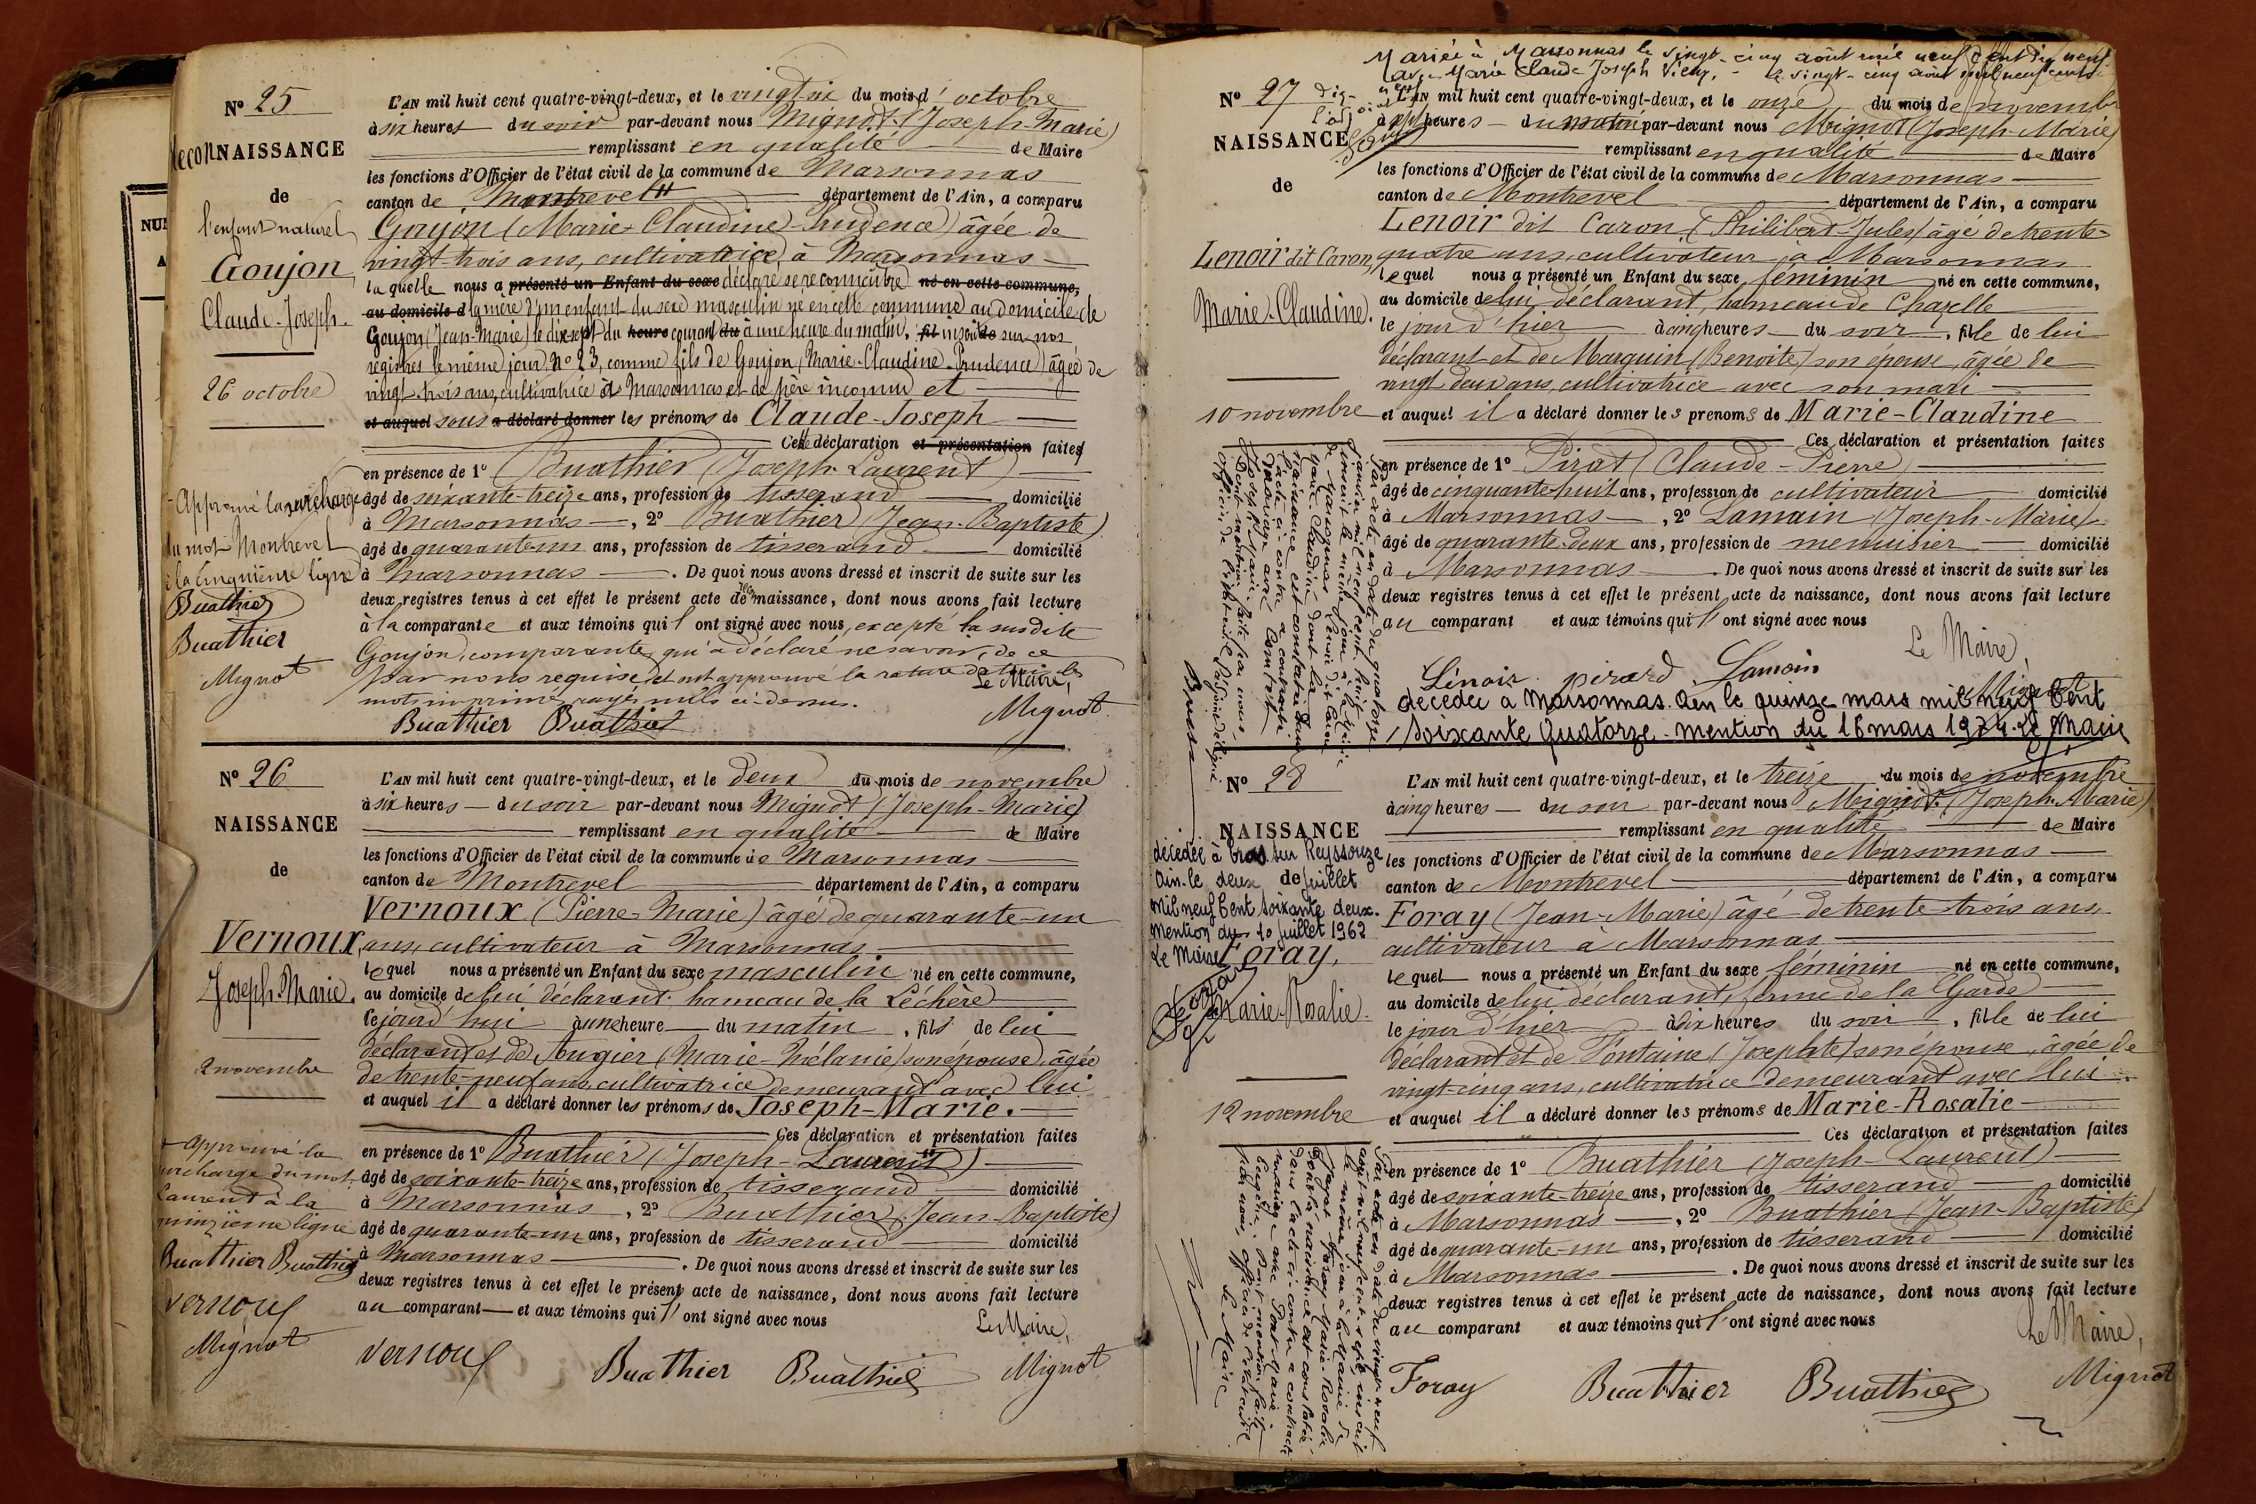 N° 25
ReconNAISSANCE
de
l'enfant naturel
Goujon
Claude-Joseph.
26 octobre
Approuvé la surcharge
du mot Montrevel
à la cinquième ligne
Buathier
Buathier
Mignot
L'AN mil huit cent quatre-vingt-deux, et le vingt-six du mois d'octobre
à six heures du soir par-devant nous Mignot (Joseph-Marie)
remplissant en qualité de Maire
les fonctions d'Officier de l'état civil de la commune de Marsonnas
canton de Montrevel département de l'Ain, a comparu
Goujon (Marie-Claudine-Prudence) âgée de
vingt-trois ans, cultivatrice à Marsonnas
laquelle nous a présenté un Enfant du sexe déclaré se reconnaître né en cette commune,
au domicile d la mère d'un enfant du sexe masculin né en cette commune au domicile de
Goujon (Jean-Marie) le dix-sept du heure courant du à une heure du matin, fil inscrit de sur nos
registres le même jour N° 23, comme fils de Goujon (Marie-Claudine-Prudence) âgée de
vingt-trois ans, cultivatrice à Marsonnas et de père inconnu et
et auquel sous a déclaré donner les prénoms de Claude-Joseph
Cette déclaration et présentation faites
en présence de 1° Buathier (Joseph-Laurent)
âgé de soixante-treize ans, profession de tisserand domicilié
à Marsonnas, 2° Buathier (Jean-Baptiste)
âgé de quarante-un ans, profession de tisserand domicilié
à Marsonnas. De quoi nous avons dressé et inscrit de suite sur les
deux registres tenus à cet effet le présent acte de naissance, dont nous avons fait lecture
à la comparante et aux témoins qui l'ont signé avec nous, excepté la susdite
Goujon, comparante, qui a déclaré ne savoir, de ce
par nous requise, et ont approuvé la rature de les
mots imprimés rayés nuls ci-dessus.
Le Maire,
Buathier Buathier Mignot
N° 26
NAISSANCE
de
Vernoux,
Joseph-Marie.
2 novembre
approuvé la
surcharge du mot
Laurent à la
quinzième ligne
Buathier Buathier
Vernoux
Mignot
L'AN mil huit cent quatre-vingt-deux, et le deux du mois de novembre
à six heures du soir par-devant nous Mignot (Joseph-Marie)
remplissant en qualité de Maire
les fonctions d'Officier de l'état civil de la commune de Marsonnas
canton de Montrevel département de l'Ain, a comparu
Vernoux (Pierre-Marie) âgé de quarante-un
ans, cultivateur à Marsonnas
lequel nous a présenté un Enfant du sexe masculin né en cette commune,
au domicile de lui déclarant, hameau de la Léchère
le jourd'hui à une heure du matin, fils de lui
déclarant et de Augier (Marie-Mélanie) son épouse, âgée
de trente-neuf ans, cultivatrice demeurant avec lui
et auquel il a déclaré donner les prénoms de Joseph-Marie.
Ces déclaration et présentation faites
en présence de 1° Buathier (Joseph-Laurent)
âgé de soixante-treize ans, profession de tisserand domicilié
à Marsonnas, 2° Buathier (Jean-Baptiste)
âgé de quarante-un ans, profession de tisserand domicilié
à Marsonnas. De quoi nous avons dressé et inscrit de suite sur les
deux registres tenus à cet effet le présent acte de naissance, dont nous avons fait lecture
au comparant et aux témoins qui l'ont signé avec nous
Le Maire,
Vernoux Buathier Buathier Mignot
Mariée à Marsonnas le vingt-cinq août mil neuf cent dix neuf
avec Marie Claude Joseph Vieux, le vingt-cinq août mil neuf cent
N° 27
NAISSANCE
de
Lenoir dit Caron,
Marie-Claudine.
10 novembre
L'AN mil huit cent quatre-vingt-deux, et le onze du mois de novembre
à sept heures du matin par-devant nous Mignot (Joseph-Marie)
remplissant en qualité de Maire
les fonctions d'Officier de l'état civil de la commune de Marsonnas
canton de Montrevel département de l'Ain, a comparu
Lenoir dit Caron (Philibert-Jules) âgé de trente-
quatre ans, cultivateur à Marsonnas
lequel nous a présenté un Enfant du sexe féminin né en cette commune,
au domicile de lui déclarant, hameau de Chazelle
le jour d'hier à cinq heures du soir, fille de lui
déclarant et de Marguin (Benoite) son épouse, âgée de
vingt-deux ans, cultivatrice avec son mari
et auquel il a déclaré donner les prénoms de Marie-Claudine
Ces déclaration et présentation faites
en présence de 1° Pirat (Claude-Pierre)
âgé de cinquante-huit ans, profession de cultivateur domicilié
à Marsonnas, 2° Lamain (Joseph-Marie)
âgé de quarante-deux ans, profession de menuisier domicilié
à Marsonnas. De quoi nous avons dressé et inscrit de suite sur les
deux registres tenus à cet effet le présent acte de naissance, dont nous avons fait lecture
au comparant et aux témoins qui l'ont signé avec nous
Le Maire,
Lénoir pirard Lamain Mignot
décédée à Marsonnas. Ain le quinze mars mil neuf Cent
Soixante Quatorze. mention du 16 mars 1974. Le Maire
N° 28
NAISSANCE
de
décédée à Bras sur Reyssouze
Ain. le deux Juillet
mil neuf Cent Soixante deux.
mention du 10 Juillet 1962
Le Maire
Foray,
Marie-Rosalie.
12 novembre
L'AN mil huit cent quatre-vingt-deux, et le treize du mois de novembre
à cinq heures du soir par-devant nous Mignot (Joseph-Marie)
remplissant en qualité de Maire
les fonctions d'Officier de l'état civil de la commune de Marsonnas
canton de Montrevel département de l'Ain, a comparu
Foray (Jean-Marie) âgé de trente-trois ans,
cultivateur à Marsonnas
lequel nous a présenté un Enfant du sexe féminin né en cette commune,
au domicile de lui déclarant, ferme de la Garde
le jour d'hier à six heures du soir, fille de lui
déclarant et de Fontaine (Josephte) son épouse, âgée de
vingt-cinq ans, cultivatrice demeurant avec lui
et auquel il a déclaré donner les prénoms de Marie-Rosalie
Ces déclaration et présentation faites
en présence de 1° Buathier (Joseph-Laurent)
âgé de soixante-treize ans, profession de tisserand domicilié
à Marsonnas, 2° Buathier (Jean-Baptiste)
âgé de quarante-un ans, profession de tisserand domicilié
à Marsonnas. De quoi nous avons dressé et inscrit de suite sur les
deux registres tenus à cet effet le présent acte de naissance, dont nous avons fait lecture
au comparant et aux témoins qui l'ont signé avec nous
Le Maire,
Foray Buathier Buathier Mignot